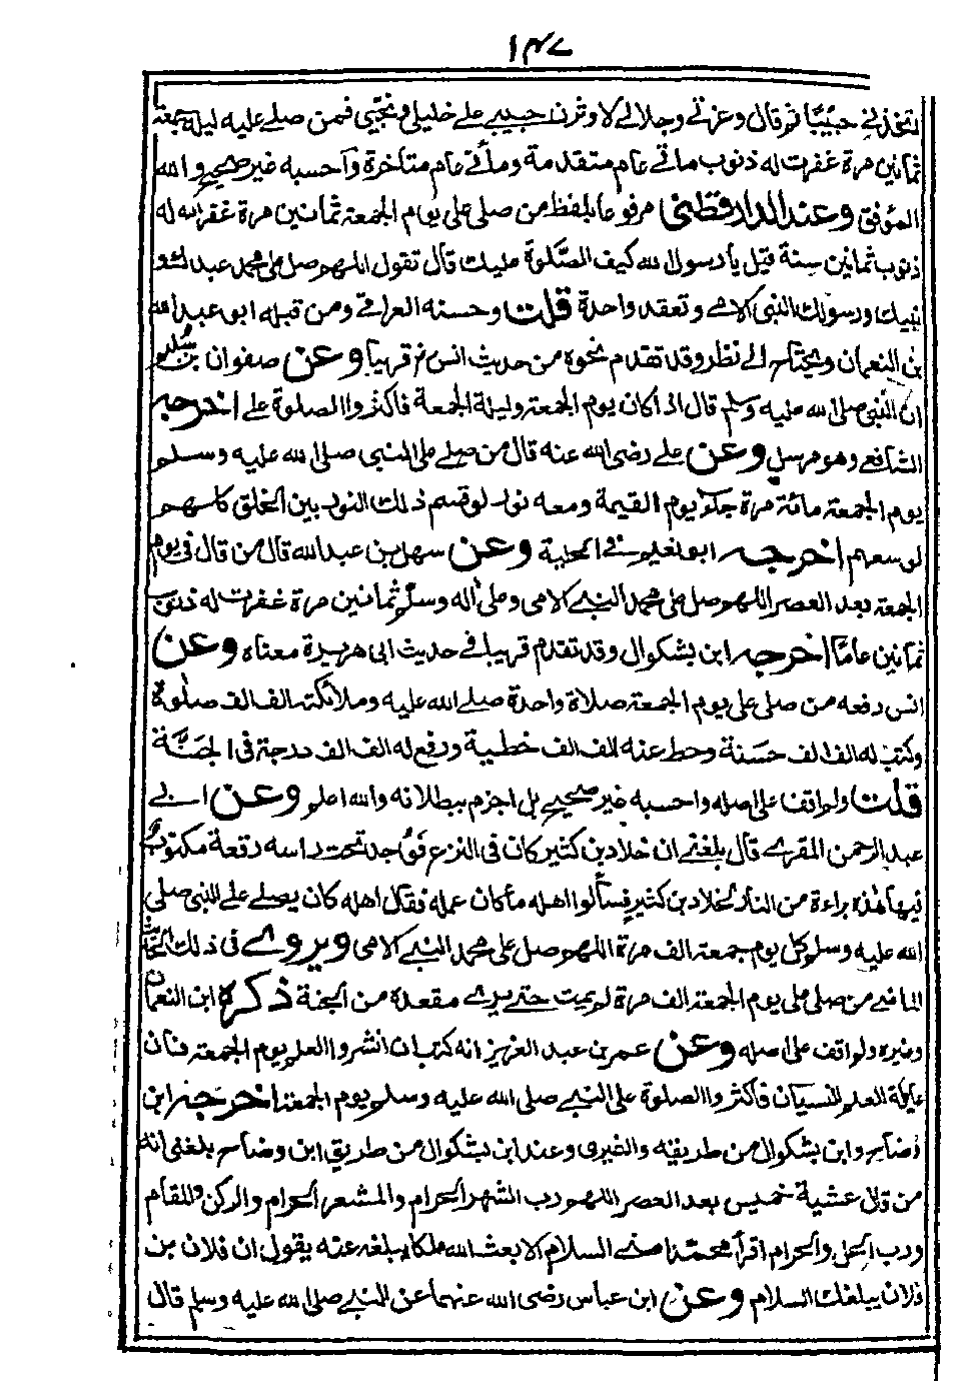 ١٤٧
اتخذني حبيبا ثم قال وعزتي وجلالي لاوثرن حبيبي على خليلي ونجيي فمن صلى عليه ليلة جمعة
ثمانين مرة غفرت له ذنوب مائتي عام متقدمة ومائتي عام متاخرة واحسبه غير صحيح والله
الموفق وعند الدارقطني مرفوعا بلفظ من صلى علي يوم الجمعة ثمانين مرة غفر الله له
ذنوب ثمانين سنة قيل يا رسول الله كيف الصلوة عليك قال تقول اللهم صل على محمد عبدك و
نبيك ورسولك النبي الامي وتعقد واحدة قلت وحسنه العراقي ومن قبله ابو عبد الله
بن النعمان ويحتاج الى نظر وقد تقدم نحوه من حديث انس قريبا وعن صفوان بن سليم
ان النبي صلى الله عليه وسلم قال اذا كان يوم الجمعة وليلة الجمعة فاكثروا الصلوة علي اخرجه
الشافعي وهو مرسل وعن علي رضى الله عنه قال من صلى على النبى صلى الله عليه وسلم
يوم الجمعة مائة مرة جاء يوم القيمة ومعه نور لو قسم ذلك النور بين الخلق كلهم
لوسعهم اخرجه ابو نعيم في الحلية وعن سهل بن عبد الله قال من قال فى يوم
الجمعة بعد العصر اللهم صل على محمد النبي الامى وعلى اله وسلم ثمانين مرة غفرت له ذنوب
ثمانين عاما اخرجه ابن بشكوال وقد تقدم قريبا في حديث ابى هريرة معناه وعن
انس رفعه من صلى علي يوم الجمعة صلاة واحدة صلى الله عليه وملائكته الف الف صلوة
وكتب له الف الف حسنة وحط عنه الف الف خطية ورفع له الف الف درجة فى الجنة
قلت ولم اقف على اصله واحسبه غير صحيح بل اجزم ببطلانه والله اعلم وعن ابي
عبد الرحمن المقري قال بلغني ان خلاد بن كثير كان فى النزع فوجد تحت راسه رقعة مكتوب
فيها هذه براءة من النار لخلاد بن كثير فسألوا اهله ما كان عمله فقال اهله كان يصلي على النبى صلى
الله عليه وسلم كل يوم جمعة الف مرة اللهم صل على محمد النبي الامى ويروى فى ذلك الحديث
الماضي من صلى على يوم الجمعة الف مرة لم يمت حتى يرى مقعده من الجنة ذكره ابن النعمان
وغيره ولم اقف على اصله وعن عمر بن عبد العزيز انه كتب ان انشروا العلم يوم الجمعة فان
غائلة العلم النسيان فاكثروا الصلوة على النبي صلى الله عليه وسلم يوم الجمعة اخرجه ابن
وضاح وابن بشكوال من طريقه والنميرى وعند ابن بشكوال من طريق ابن وضاح بلغنى انه
من قال عشية خميس بعد العصر اللهم رب الشهر الحرام والمشعر الحرام والركن والمقام
ورب الحل والحرام اقرأ محمدا منى السلام الا بعث الله ملكا يبلغه عنه يقول ان فلان بن
فلان يبلغك السلام وعن ابن عباس رضى الله عنهما عن النبي صلى الله عليه وسلم قال